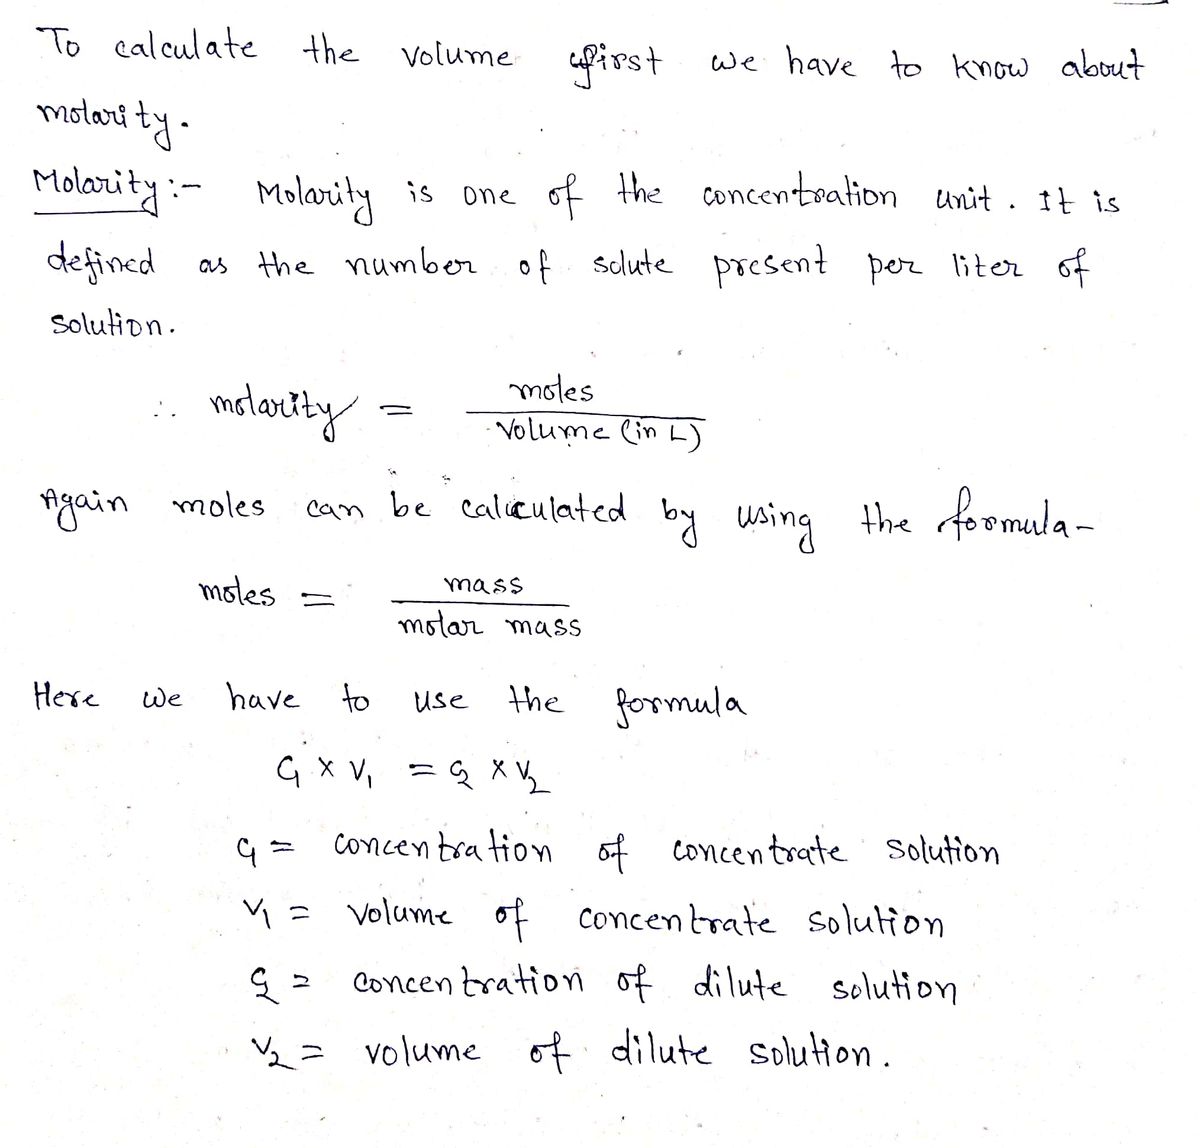 To calculate the volume first we have to know about
molarity.
Molarity :- Molarity is one of the concentration unit. It is
defined as the number of solute present per liter of
solution.
∴ molarity = moles / Volume (in L)
Again moles can be calculated by using the formula-
moles = mass / molar mass
Here we have to use the formula
C₁ × V₁ = C₂ × V₂
C₁ = concentration of concentrate solution
V₁ = volume of concentrate solution
C₂ = concentration of dilute solution
V₂ = volume of dilute solution.